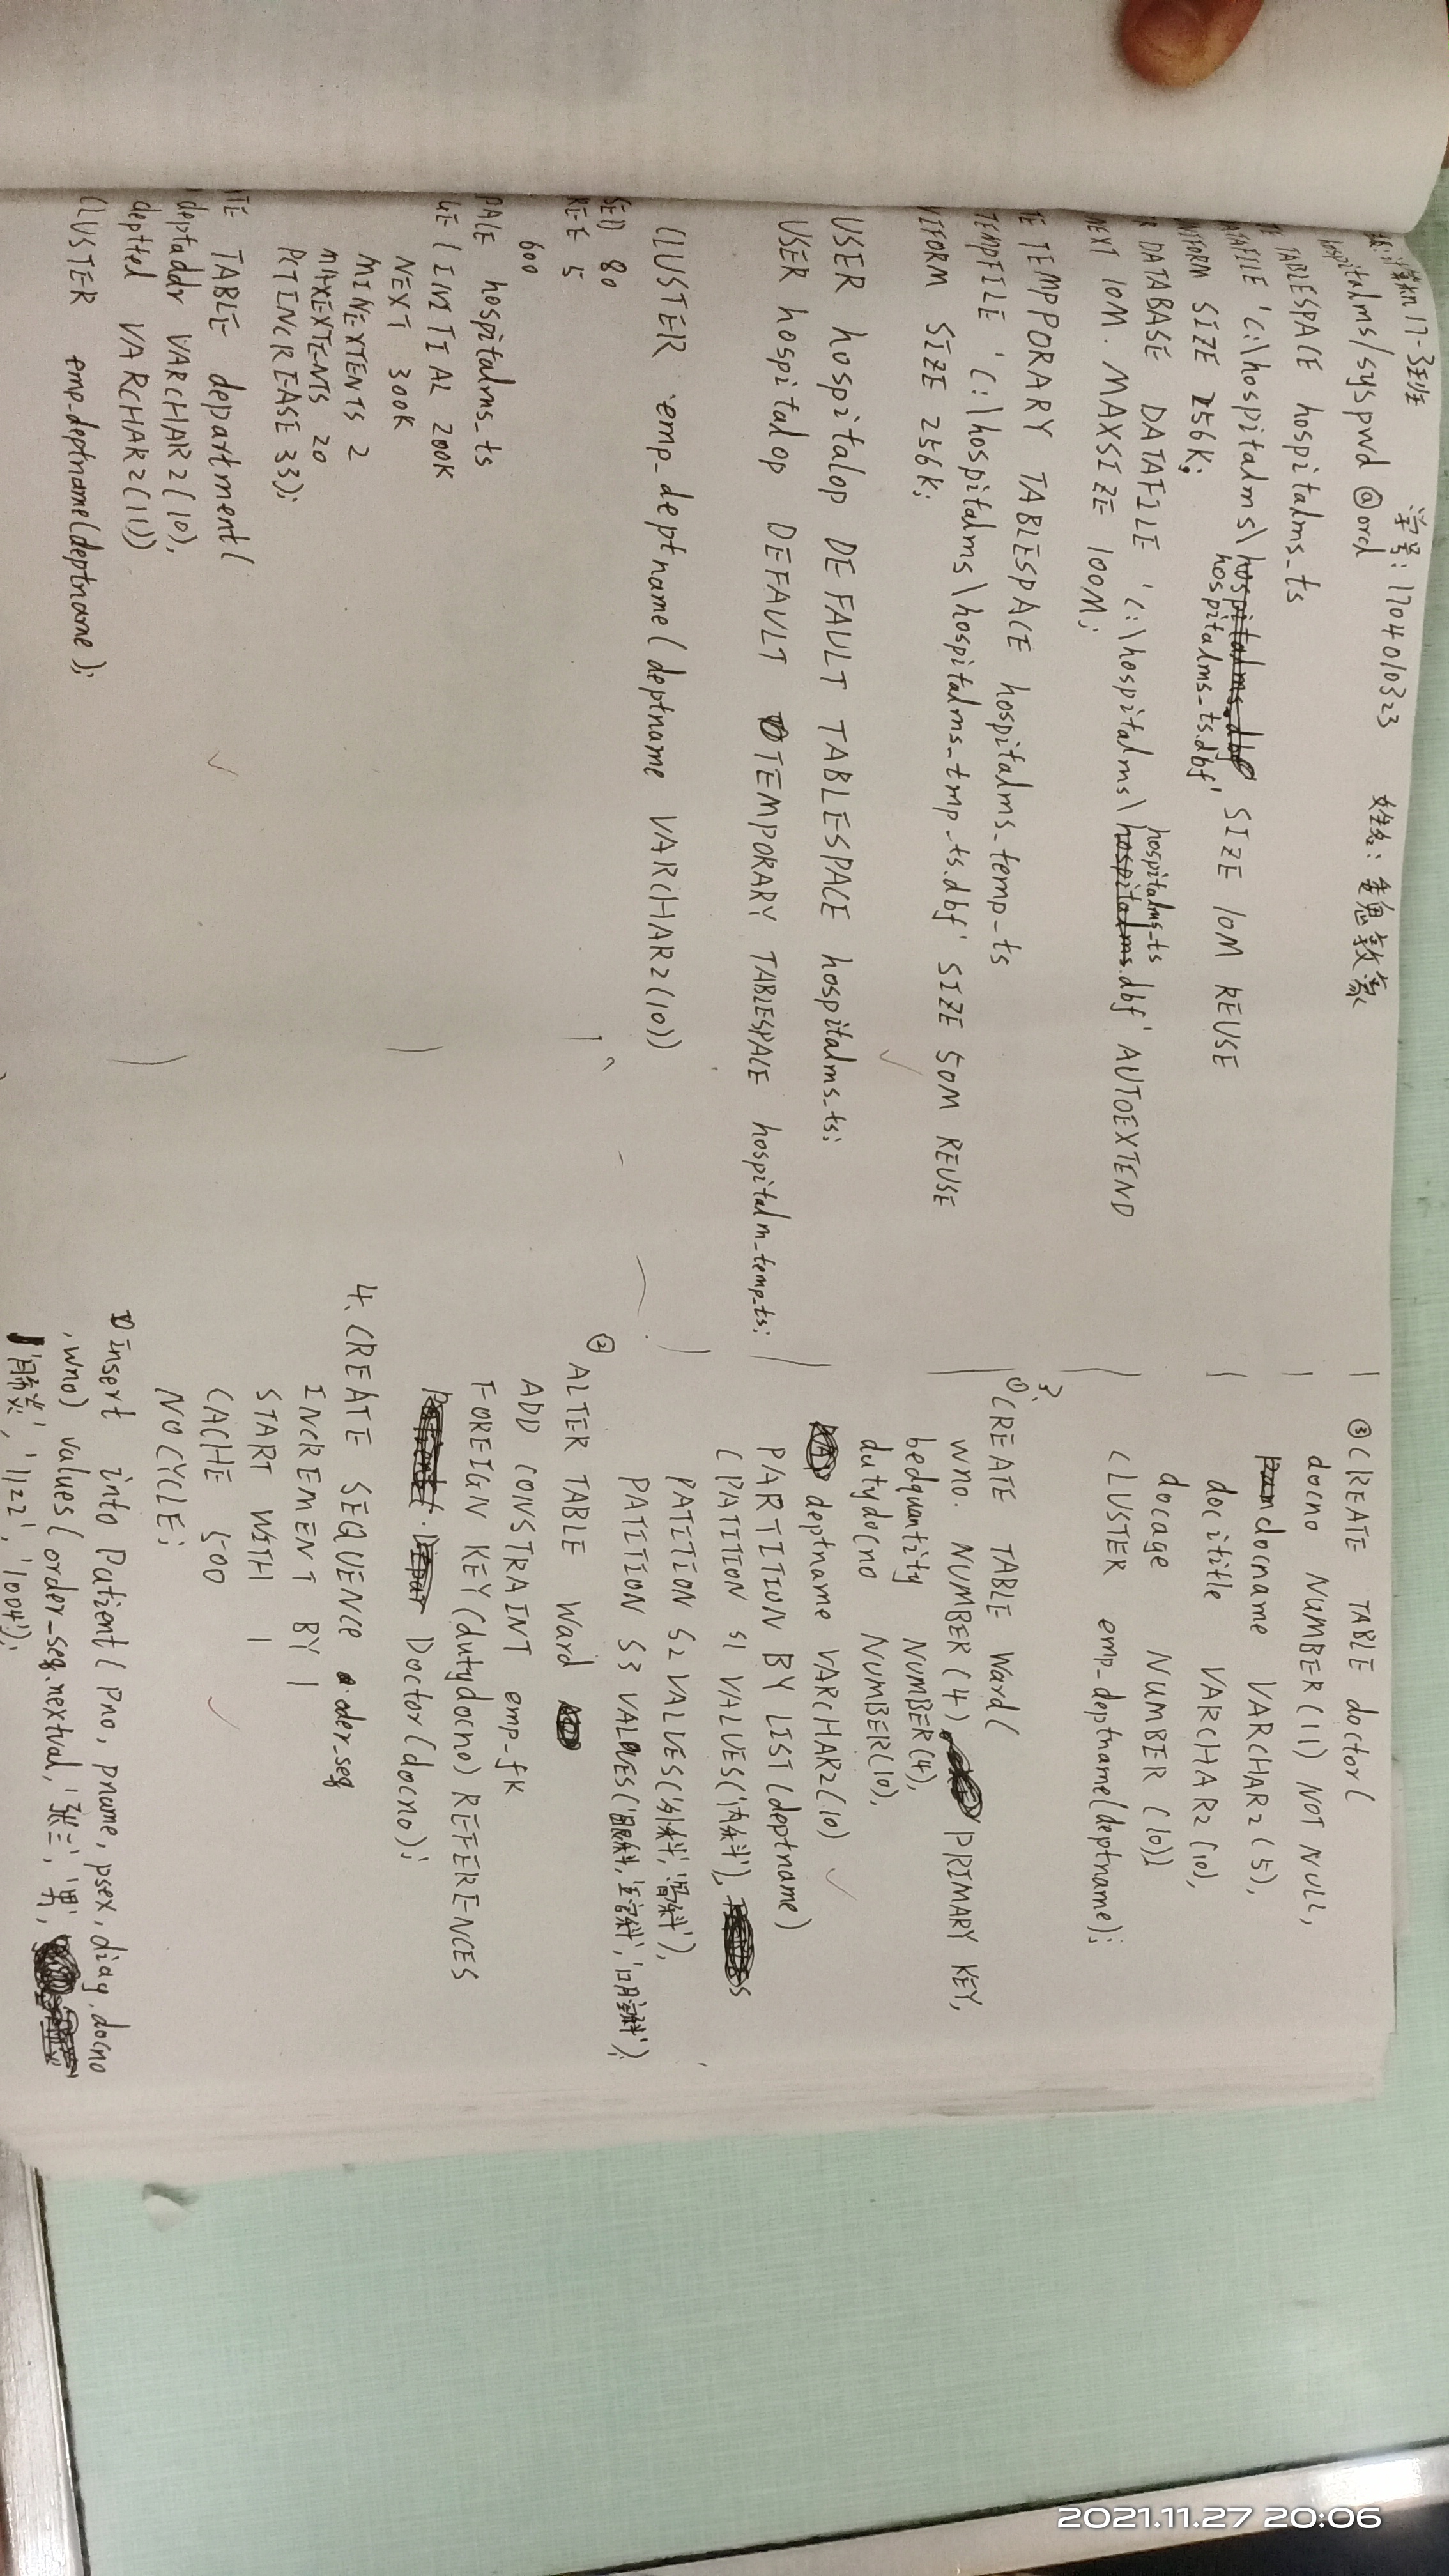 级:计算机17-3班 学号:1704010323 姓名:魏敦豪
hospitalms/syspwd @orcl
TE TABLESPACE hospitalms_ts
ATAFILE 'C:\hospitalms\hospitalms_ts.dbf' SIZE 10M REUSE
NIFORM SIZE 256K;
R DATABASE DATAFILE 'C:\hospitalms\hospitalms_ts.dbf' AUTOEXTEND
NEXT 10M. MAXSIZE 100M;
TE TEMPPORARY TABLESPACE hospitalms_temp_ts
TEMPFILE 'C:\hospitalms\hospitalms_tmp_ts.dbf' SIZE 50M REUSE
NIFORM SIZE 256K;
USER hospitalop DEFAULT TABLESPACE hospitalms_ts;
USER hospitalop DEFAULT TEMPORARY TABLESPACE hospitalm_temp_ts;
CLUSTER emp_deptname(deptname VARCHAR2(10))
SED 80
REE 5
600
PACE hospitalms_ts
GE (INITIAL 200K
NEXT 300K
MINEXTENTS 2
MAXEXTENTS 20
PCTINCREASE 33);
TE TABLE department(
deptaddr VARCHAR2(10),
depttel VARCHAR2(11))
CLUSTER emp_deptname(deptname);
③CREATE TABLE doctor(
docno NUMBER(11) NOT NULL,
docname VARCHAR2(5),
docititle VARCHAR2(10),
docage NUMBER (10))
CLUSTER emp_deptname(deptname);
3.
①CREATE TABLE Ward(
wno. NUMBER(4) PRIMARY KEY,
bedquantity NUMBER(4),
dutydocno NUMBER(10),
deptname VARCHAR2(10)
PARTITION BY LIST(deptname)
(PATITION S1 VALUES('内科'),
PATITION S2 VALUES('外科','骨科'),
PATITION S3 VALUES('眼科,'五官科','口腔科');
②
ALTER TABLE Ward
ADD CONSTRAINT emp_fk
FOREIGN KEY(dutydocno) REFERENCES
Doctor(docno);
4. CREATE SEQUENCE oder_seq
INCREMENT BY 1
START WITH 1
CACHE 500
NOCYCLE;
①Insert into Patient(Pno, pname, psex, diag, docno
,wno) values(order_seq.nextval,'张三','男',
'肺炎','1122','1004');
2021.11.27 20:06